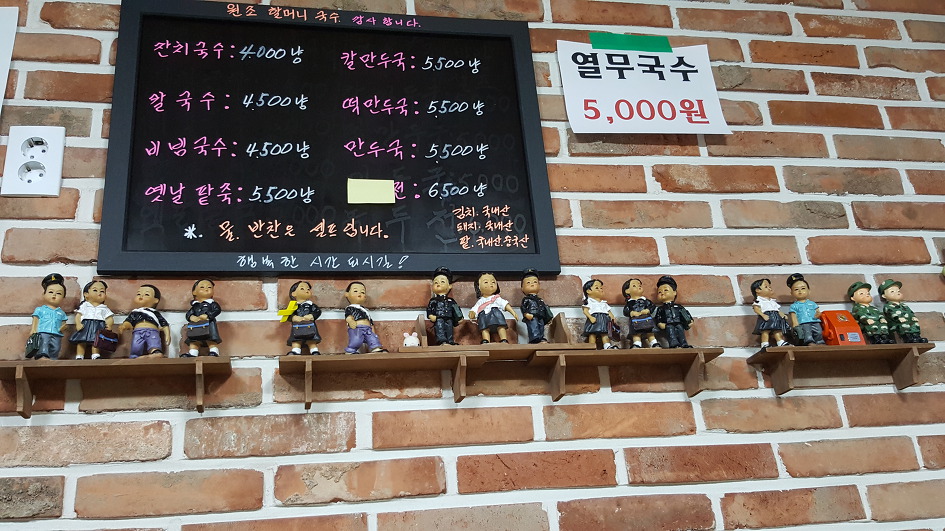 원조 할머니 국수 감사 합니다.
잔치국수: 4,000냥
칼만두국: 5,500냥
칼국수: 4,500냥
떡만두국: 5,500냥
비빔국수: 4,500냥
만두국: 5,500냥
옛날 팥죽: 5,500냥
전: 6,500냥
김치. 국내산
돼지. 국내산
팥. 국내산 중국산
※. 물. 반찬은 셀프 입니다.
행복한 시간 되시길!
열무국수
5,000원